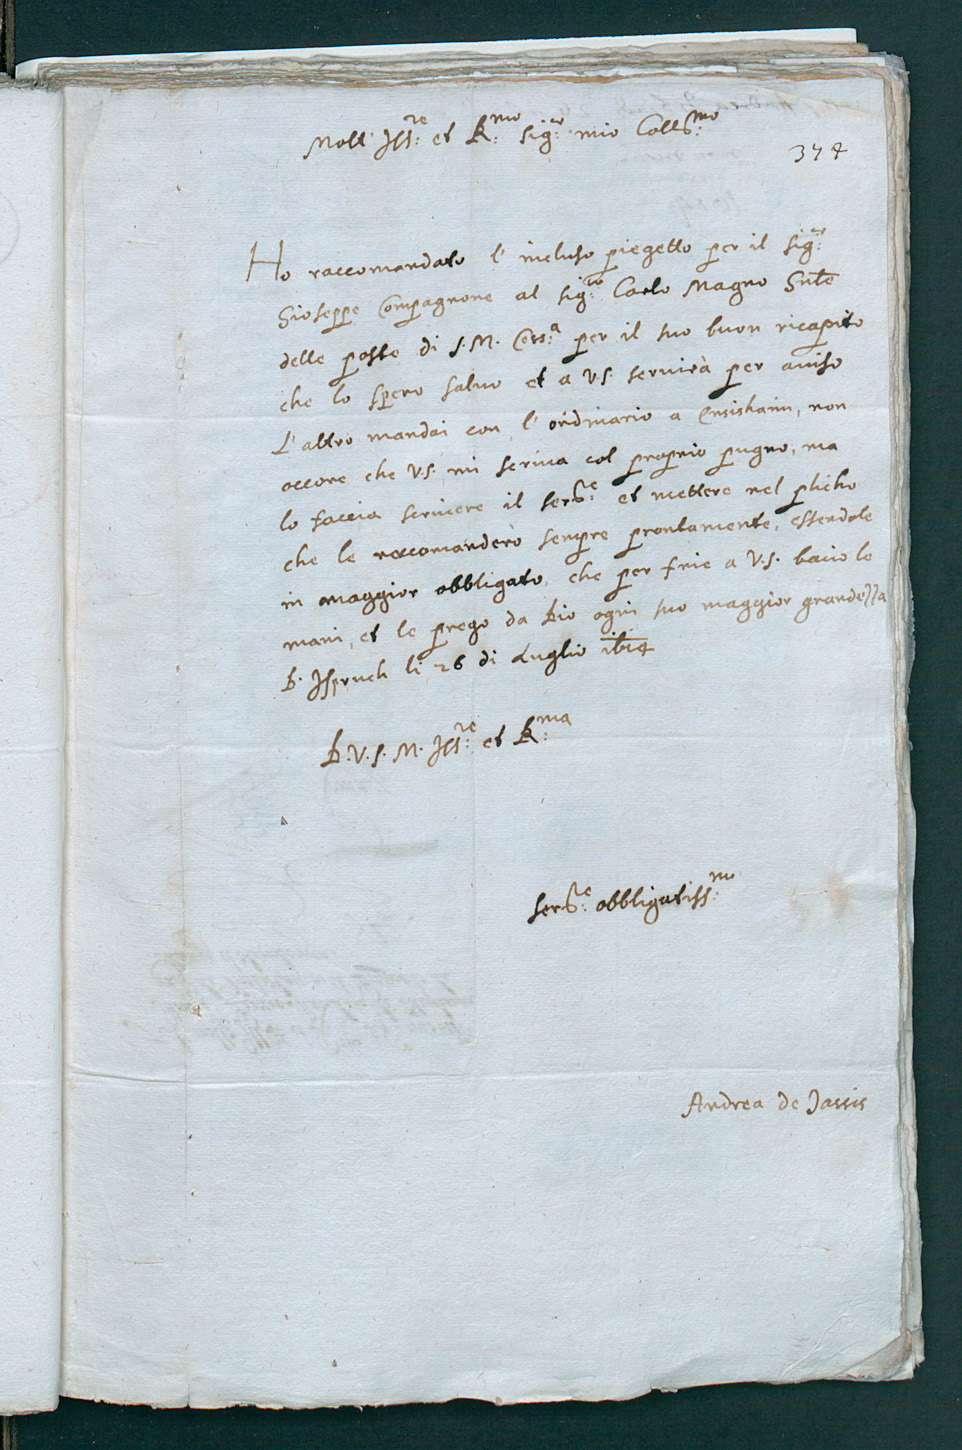 Molt' Ill:re et R:mo sig:r mio Coll:mo
374
Ho raccomandato l' incluso piegetto per il sig:r
Gioseppe Compagnone al sig:ro Carlo Magno
delle poste di S. M. Ces:a per il suo buon ricapito
che lo spero salvo et a V.S. servirà per aviso
L'altro mandai con l' ordinario a Ensishaim, non
occore che V.S. mi scriva col proprio pugno, ma
lo faccia scrivere il ser:re et mettere nel plicho
che le raccomanderò sempre prontamente, essendole
in maggior obbligato, che per fine a V.S. bacio le
mani, et le prego da Dio ogni suo maggior grandezza
D. Ispruch li 26 di Luglio 1614
D. V. S. M. Ill:re et R:ma
ser:re obbligatiss:mo
Andrea de Tassis